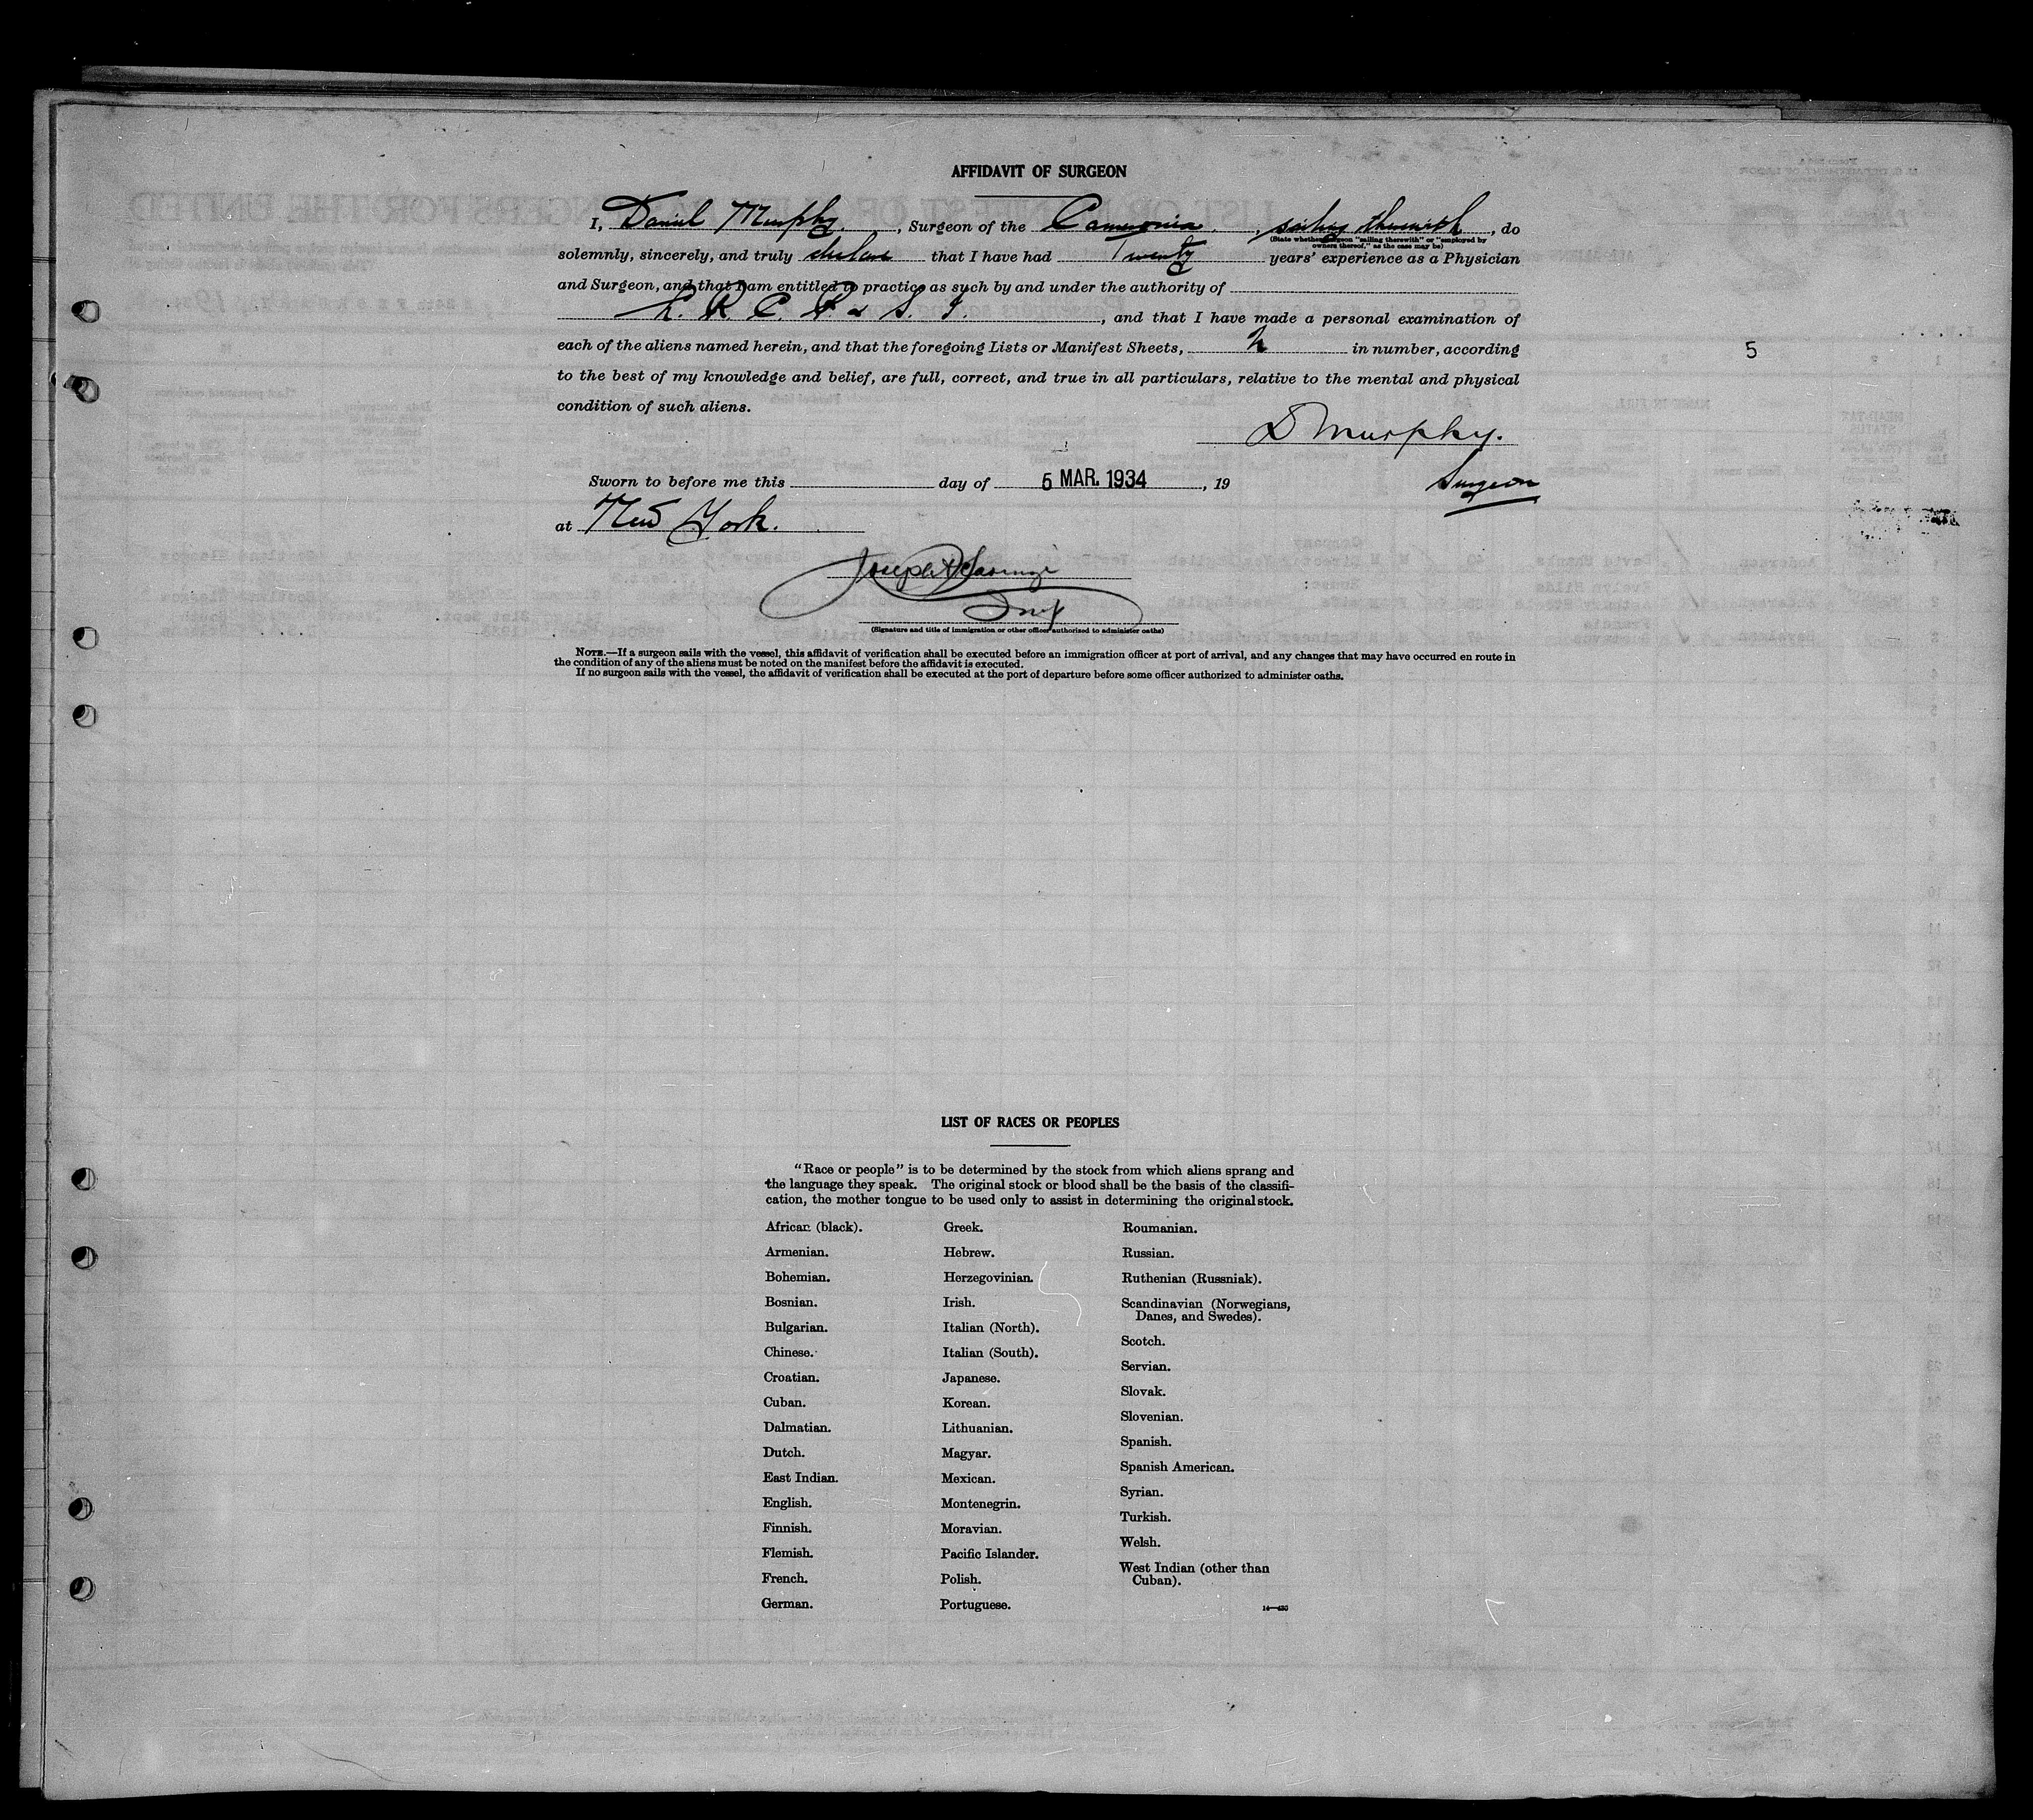 AFFIDAVIT OF SURGEON
I, Daniel Murphy, Surgeon of the Cameronia, sailing therewith, do
(State whether surgeon "sailing therewith" or "employed by
owners thereof," as the case may be)
solemnly, sincerely, and truly declare that I have had Twenty years' experience as a Physician
and Surgeon, and that I am entitled to practice as such by and under the authority of
L. R. C. P. & S. I., and that I have made a personal examination of
each of the aliens named herein, and that the foregoing Lists or Manifest Sheets, 2 in number, according
5
to the best of my knowledge and belief, are full, correct, and true in all particulars, relative to the mental and physical
condition of such aliens.
D Murphy.
Surgeon
Sworn to before me this day of 5 MAR. 1934, 19
at New York.
Joseph
(Signature and title of immigration or other officer authorized to administer oaths)
NOTE.—If a surgeon sails with the vessel, this affidavit of verification shall be executed before an immigration officer at port of arrival, and any changes that may have occurred en route in
the condition of any of the aliens must be noted on the manifest before the affidavit is executed.
If no surgeon sails with the vessel, the affidavit of verification shall be executed at the port of departure before some officer authorized to administer oaths.
LIST OF RACES OR PEOPLES
"Race or people" is to be determined by the stock from which aliens sprang and
the language they speak. The original stock or blood shall be the basis of the classifi-
cation, the mother tongue to be used only to assist in determining the original stock.
African (black).
Armenian.
Bohemian.
Bosnian.
Bulgarian.
Chinese.
Croatian.
Cuban.
Dalmatian.
Dutch.
East Indian.
English.
Finnish.
Flemish.
French.
German.
Greek.
Hebrew.
Herzegovinian.
Irish.
Italian (North).
Italian (South).
Japanese.
Korean.
Lithuanian.
Magyar.
Mexican.
Montenegrin.
Moravian.
Pacific Islander.
Polish.
Portuguese.
Roumanian.
Russian.
Ruthenian (Russniak).
Scandinavian (Norwegians,
Danes, and Swedes).
Scotch.
Servian.
Slovak.
Slovenian.
Spanish.
Spanish American.
Syrian.
Turkish.
Welsh.
West Indian (other than
Cuban).